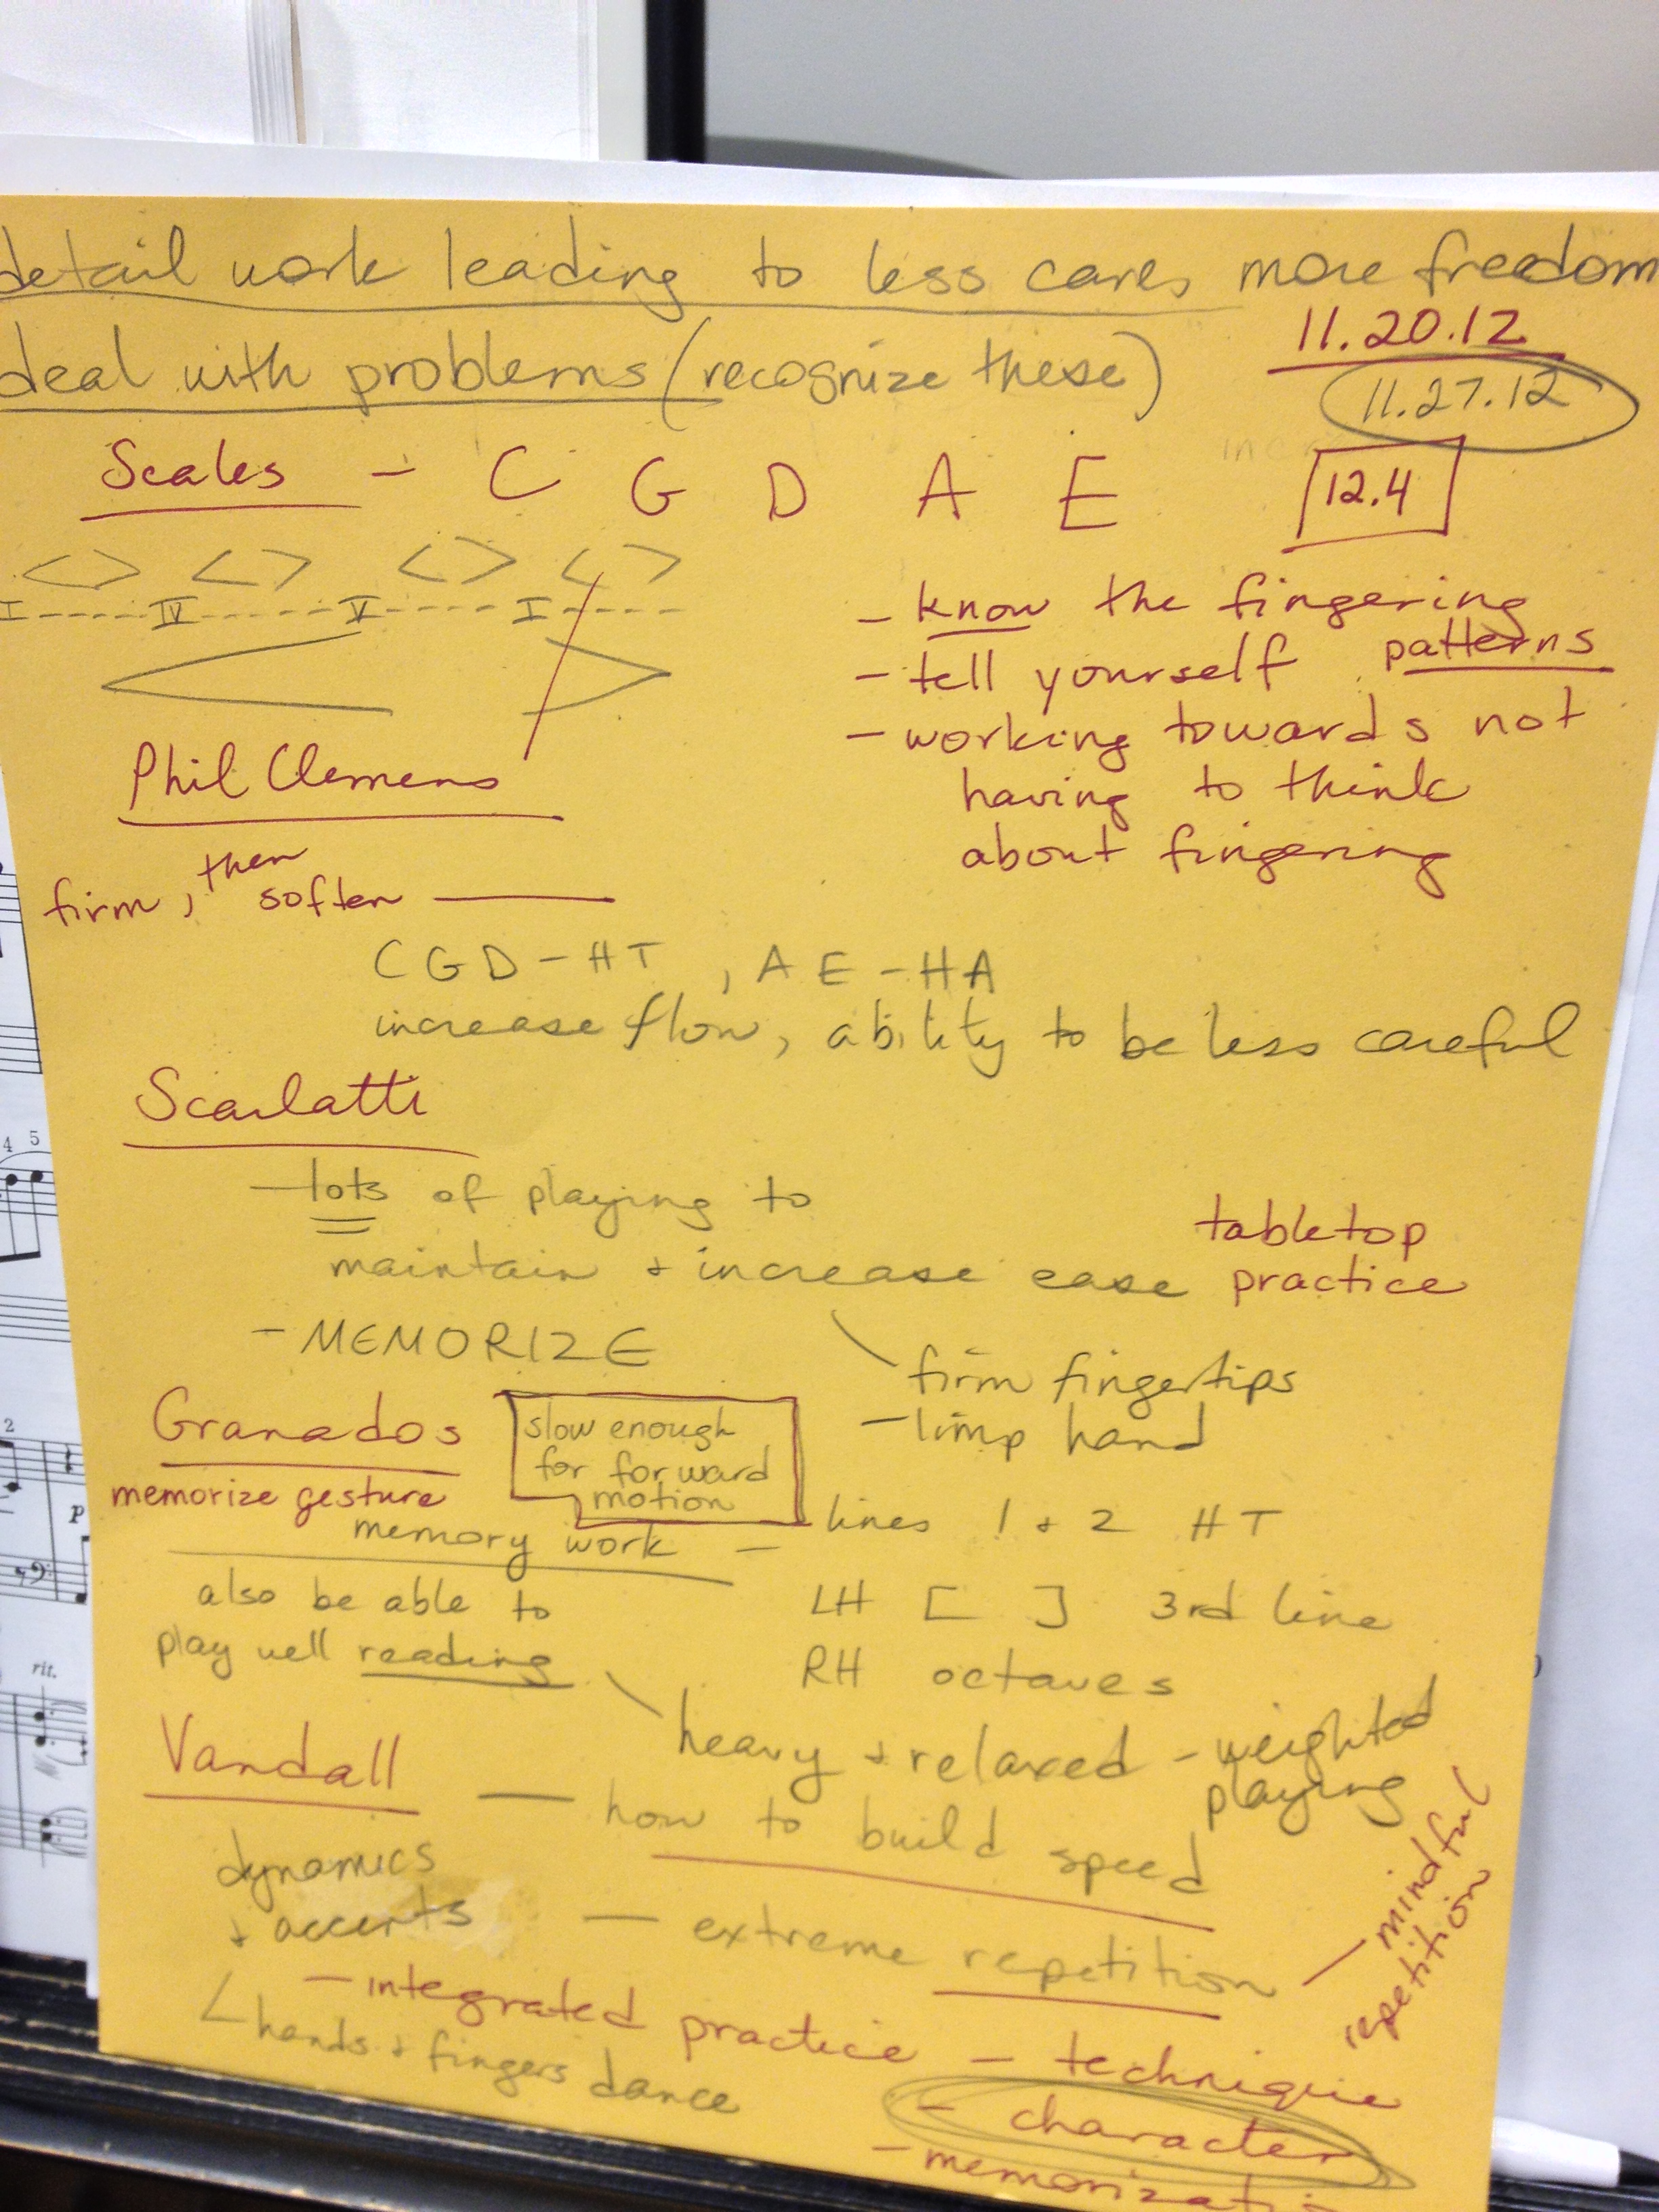 detail work leading to less cares more freedom
deal with problems (recognize these)
11.20.12
11.27.12
12.4
Scales - C G D A E
<> <> <> <>
I ---- IV ---- V ---- I ----
- know the fingering
patterns
- tell yourself
- working towards not
having to think
about fingering
Phil Clemens
firm, then soften
CGD - HT, AE - HA
increase flow, ability to be less careful
Scarlatti
- lots of playing to
maintain + increase ease
tabletop
practice
- MEMORIZE
firm fingertips
- limp hand
Granados
slow enough
for forward
motion
memorize gesture
memory work - lines 1 + 2 HT
LH [ ] 3rd line
RH octaves
also be able to
play well reading
heavy + relaxed - weighted
playing
Vandall - how to build speed
dynamics
+ accents
- extreme repetition - mindful
repetition
- integrated practice - technique
hands + fingers dance
- character
- memorizati
4 5
2
p
rit.